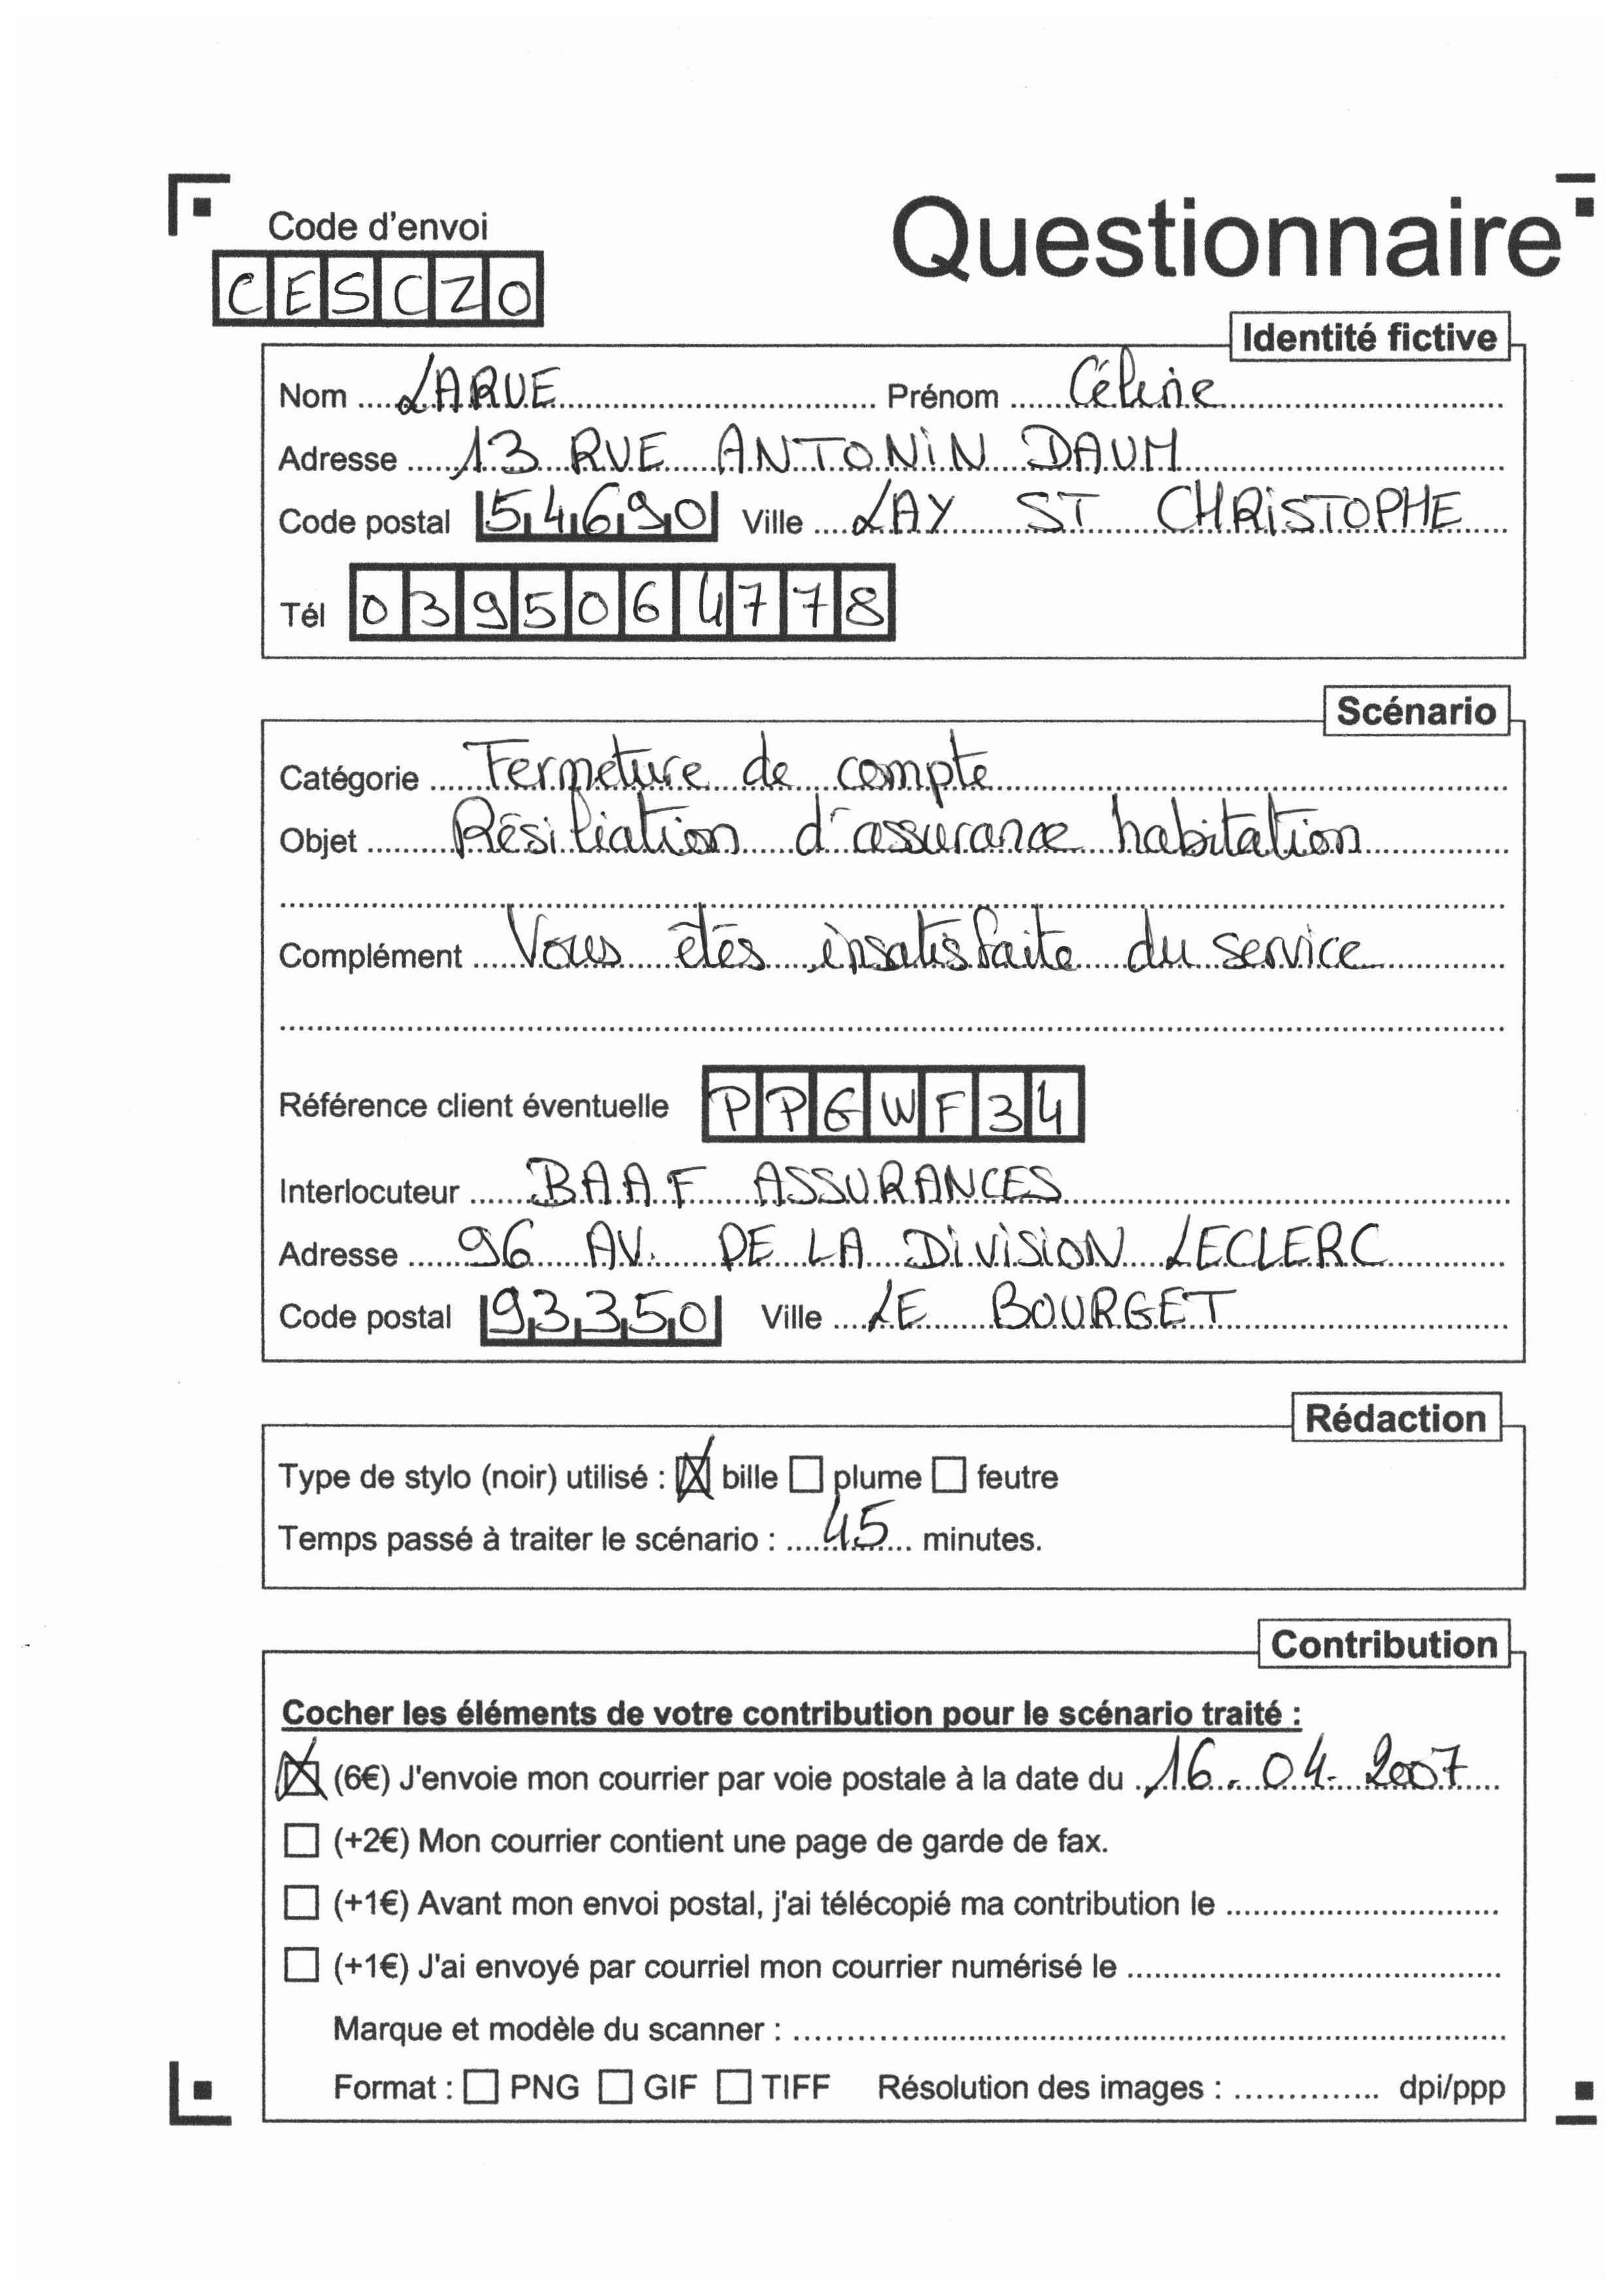 Code d'envoi
Questionnaire
CESCZO
Identité fictive
Nom LARUE Prénom Céline
Adresse 13 RUE ANTONIN DAUM
Code postal 54690 Ville LAY ST CHRISTOPHE
Tél 0395064778
Scénario
Catégorie Fermeture de compte
Objet Résiliation d'assurance habitation
Complément Vous êtes insatisfaite du service
Référence client éventuelle PPGWF34
Interlocuteur BAAF ASSURANCES
Adresse 96 AV. DE LA DIVISION LECLERC
Code postal 93350 Ville LE BOURGET
Rédaction
Type de stylo (noir) utilisé : ☒ bille ☐ plume ☐ feutre
Temps passé à traiter le scénario : 45 minutes.
Contribution
Cocher les éléments de votre contribution pour le scénario traité :
☒ (6€) J'envoie mon courrier par voie postale à la date du 16.04.2007
☐ (+2€) Mon courrier contient une page de garde de fax.
☐ (+1€) Avant mon envoi postal, j'ai télécopié ma contribution le
☐ (+1€) J'ai envoyé par courriel mon courrier numérisé le
Marque et modèle du scanner :
Format : ☐ PNG ☐ GIF ☐ TIFF Résolution des images : dpi/ppp